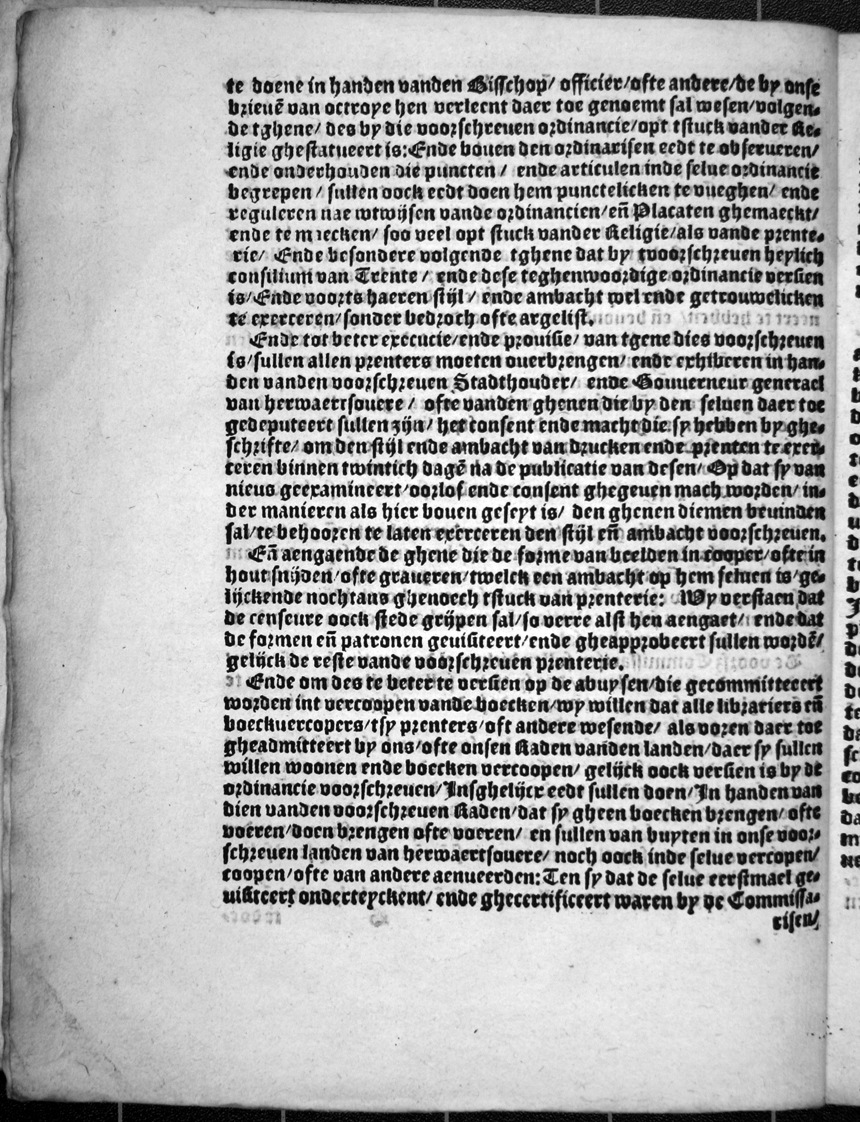 te doene in handen vanden Bisschop/ officier/ofte andere/de by onse
brieuē van octroye hen verleent daer toe genoemt sal wesen/volgen-
de tghene/ des by die voorschreuen ordinancie/opt tstuck vander Re-
ligie ghestatueert is: Ende bouen den ordinarisen eedt te obserueren/
ende onderhouden die puncten/ ende articulen inde selue ordinancie
begrepen/ sullen oock eedt doen hem punctelicken te vueghen/ ende
reguleren nae wtwijsen vande ordinancien/eñ Placaten ghemaeckt/
ende te maecken/ soo veel opt stuck vander Religie/als vande prente-
rie/ Ende besondere volgende tghene dat by tvoorschreuen heylich
consilium van Trente/ ende dese teghenwoordige ordinancie versien
is/Ende voorts haeren stijl/ ende ambacht wel ende getrouwelicken
te exerceren/sonder bedroch ofte argelist.
Ende tot beter execucie/ende prouisie/ van tgene dies voorschreuen
is/sullen allen prenters moeten ouerbrengen/ ende exhiberen in han-
den vanden voorschreuen Stadthouder/ ende Gouuerneur generael
van herwaertsouere/ ofte vanden ghenen die by den seluen daer toe
gedeputeert sullen zijn/ het consent ende macht die sy hebben by ghe-
schrifte/ om den stijl ende ambacht van drucken ende prenten te exer-
teren binnen twintich dagē na de publicatie van desen/ Op dat sy van
nieus geexamineert/oorlof ende consent ghegeuen mach worden/ in-
der manieren als hier bouen geseyt is/ den ghenen diemen beuinden
sal/te behooren te laten exerceren den stijl eñ ambacht voorschreuen.
Eñ aengaende de ghene die de forme van beelden in cooper/ofte in
hout snijden/ofte graueren/twelck een ambacht op hem seluen is/ge-
lijckende nochtans ghenoech tstuck van prenterie: Wy verstaen dat
de censeure oock stede grijpen sal/so verre alst hen aengaet/ ende dat
de formen eñ patronen geuisiteert/ende gheapprobeert sullen wordē/
gelijck de reste vande voorschreuen prenterie.
Ende om des te beter te versien op de abuysen/die gecommitteeert
worden int vercoopen vande boecken/wy willen dat alle librariers eñ
boeckuercopers/tsy prenters/oft andere wesende/ als voren daer toe
gheadmitteert by ons/ofte onsen Raden vanden landen/daer sy sullen
willen woonen ende boecken vercoopen/ gelijck oock versien is by de
ordinancie voorschreuen/Insghelijcx eedt sullen doen/In handen van
dien vanden voorschreuen Raden/dat sy gheen boecken brengen/ ofte
voeren/doen brengen ofte voeren/ en sullen van buyten in onse voor-
schreuen landen van herwaertsouere/ noch oock inde selue vercopen/
coopen/ofte van andere aenueerden: Ten sy dat de selue eerstmael ge-
uisiteert onderteyckent/ ende ghecertificeert waren by de Commissa-
risen/